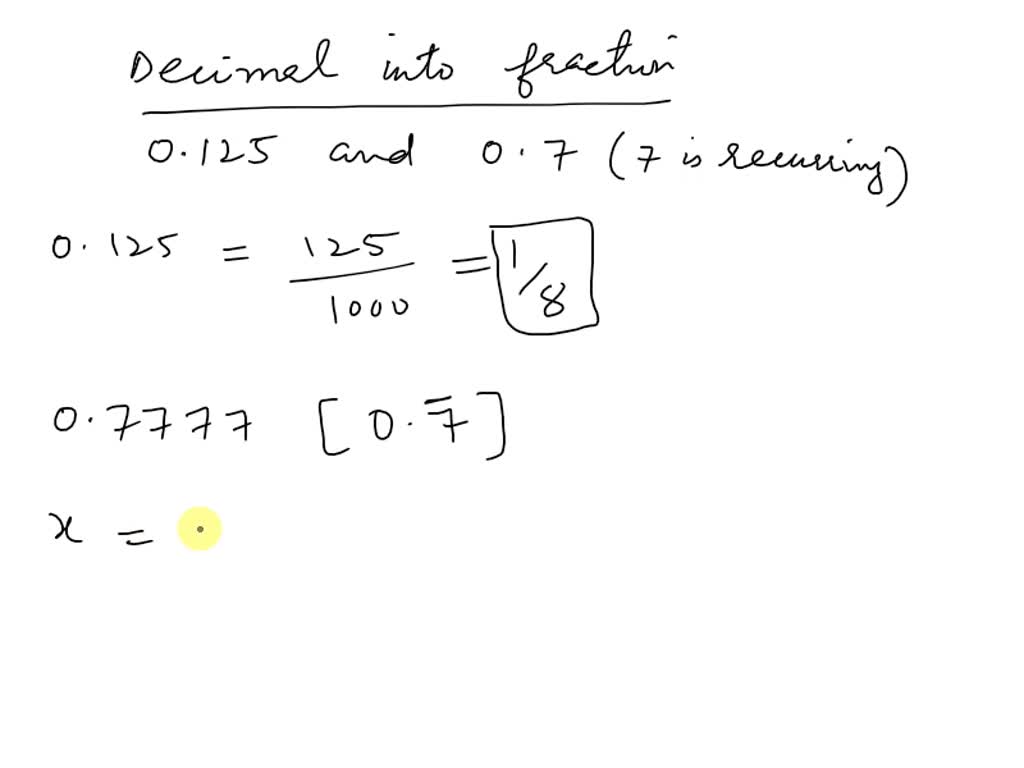 Decimal into fraction
0.125 and 0.7 (7 is recurring)
0.125 = 125/1000 = 1/8
0.7777 [0.7̅]
x =